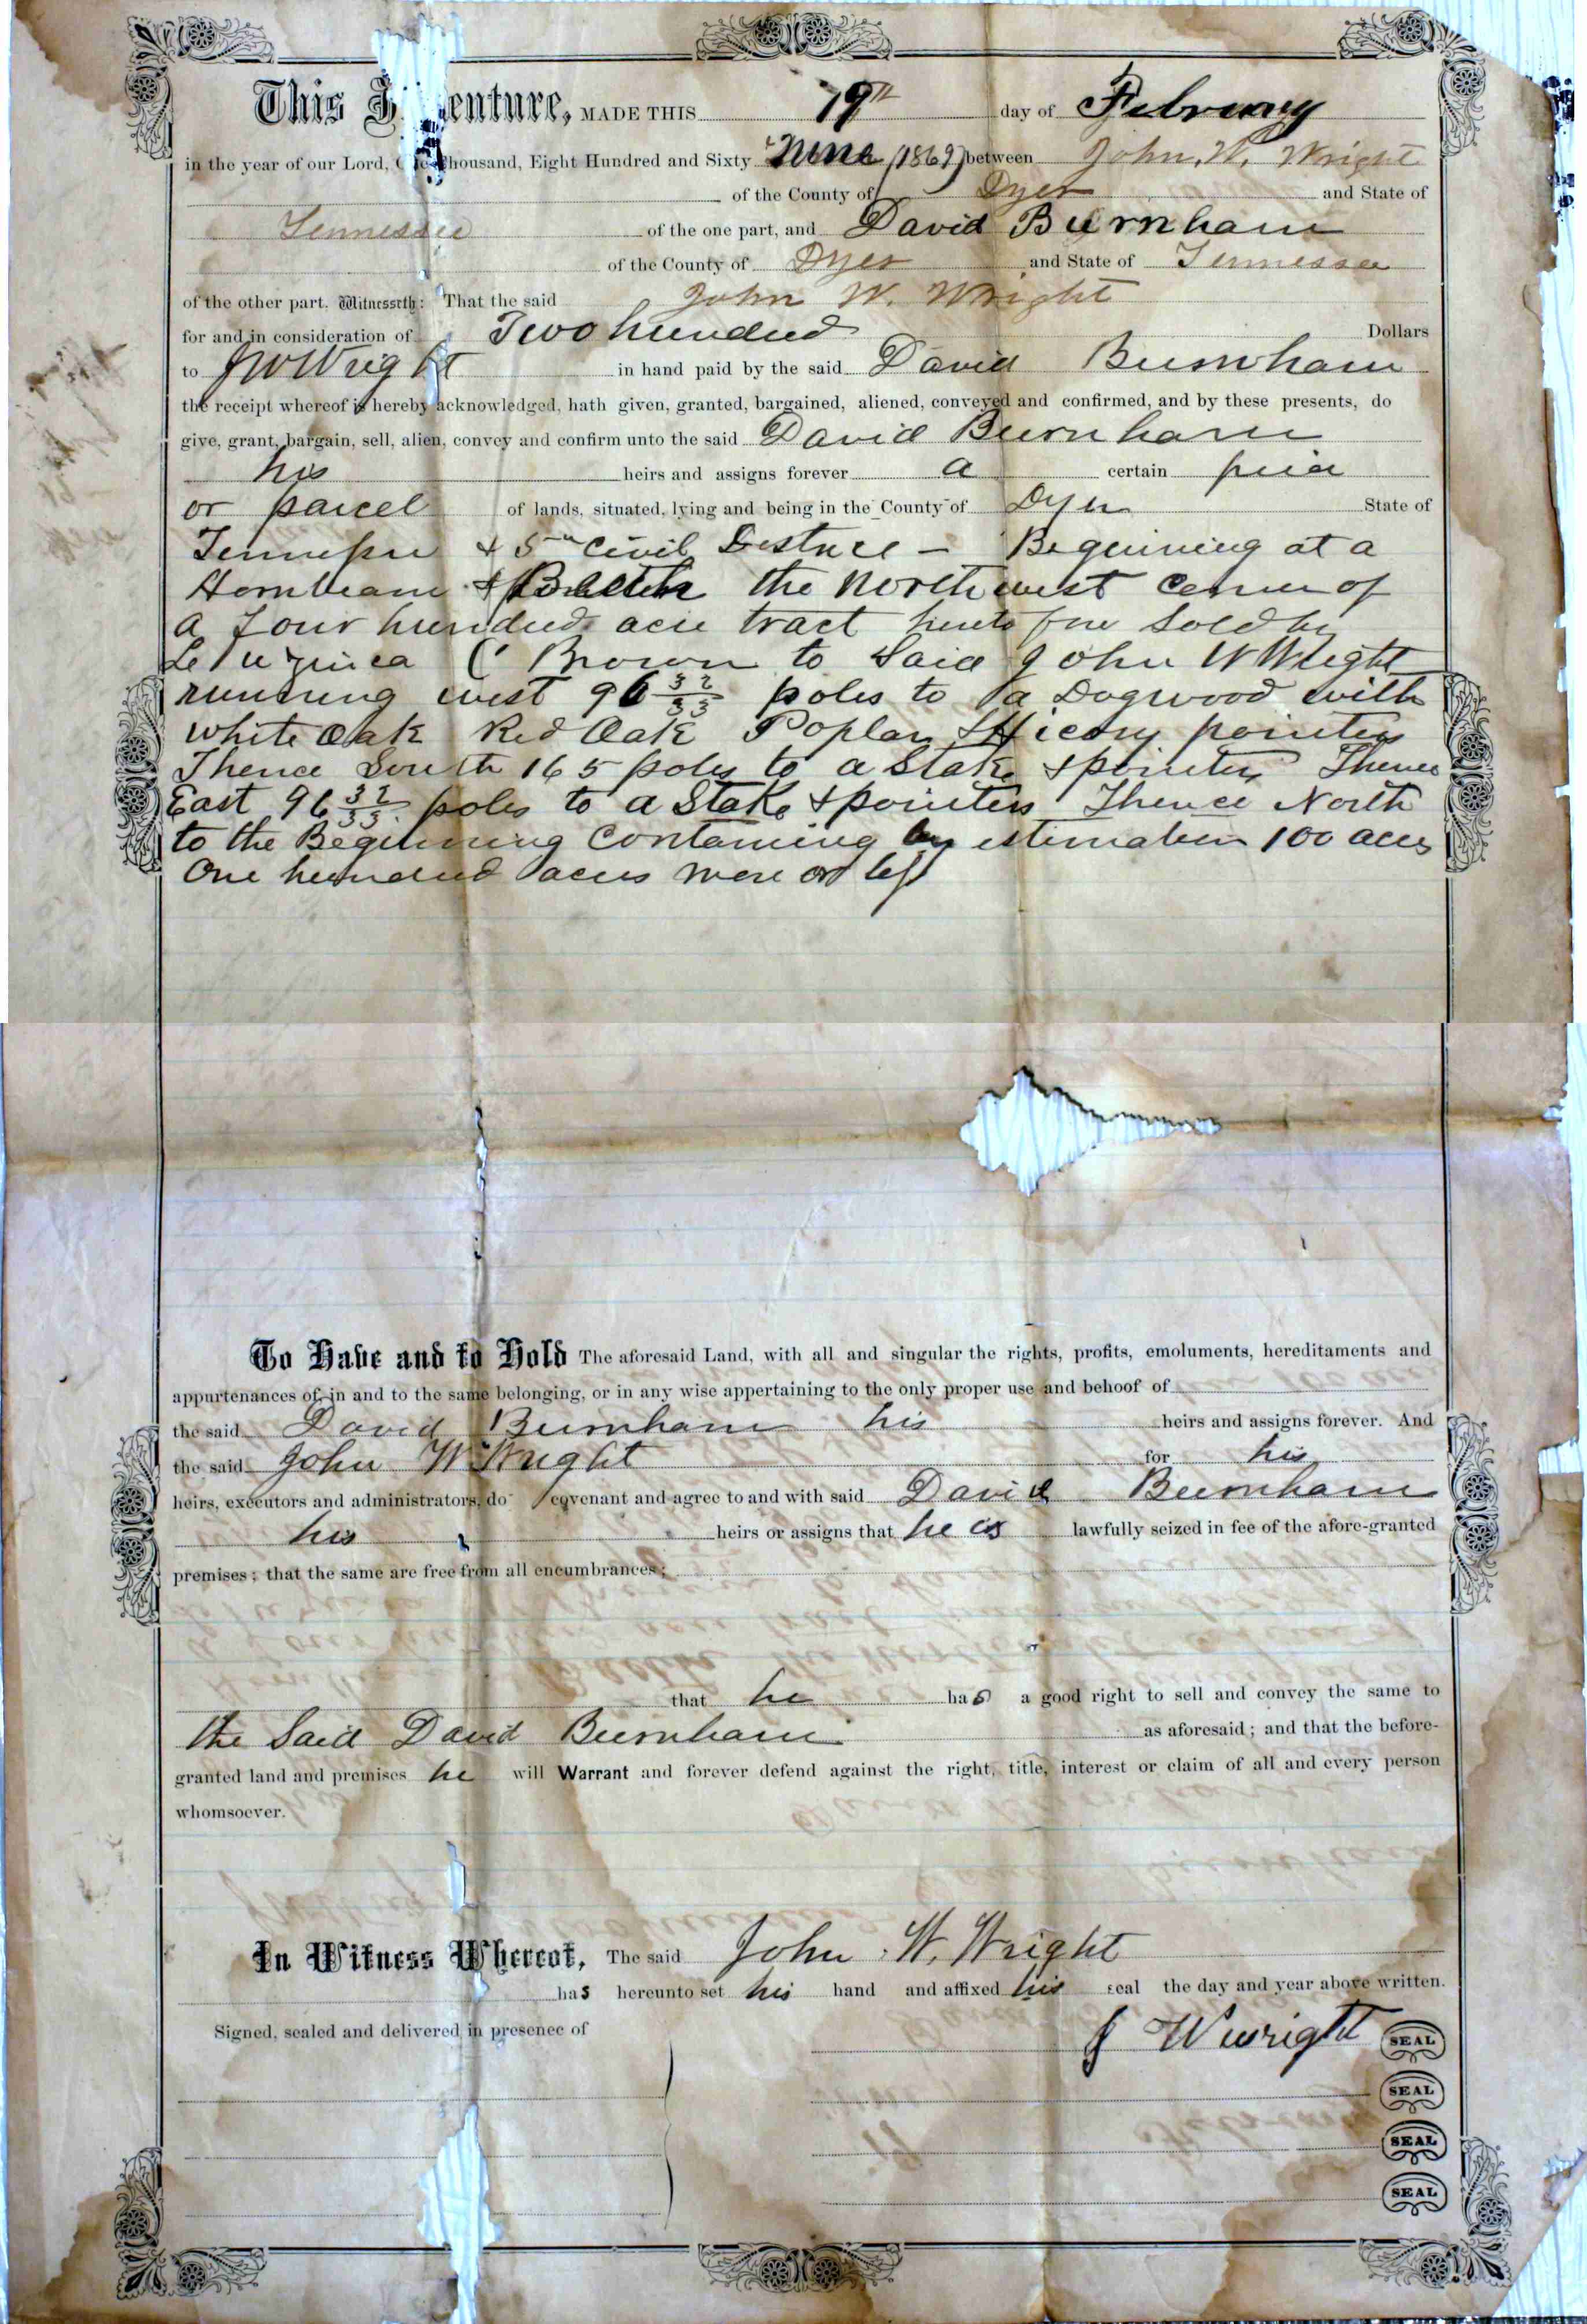 This Indenture, MADE THIS 19th day of Februay
in the year of our Lord, One Thousand, Eight Hundred and Sixty Nine (1869) between John W. Wright
of the County of Dyer and State of
Tennessee of the one part, and David Burnham
of the County of Dyer and State of Tennessee
of the other part. Witnesseth: That the said John W. Wright
for and in consideration of Two hundred Dollars
to JW Wright in hand paid by the said David Burnham
the receipt whereof is hereby acknowledged, hath given, granted, bargained, aliened, conveyed and confirmed, and by these presents, do
give, grant, bargain, sell, alien, convey and confirm unto the said David Burnham
his heirs and assigns forever a certain piece
or parcel of lands, situated, lying and being in the County of Dyer State of
Tennessee & 5th Civil District – Beginning at a
Hornbeam & the North west Corner of
a Four hundred acre tract heretofore Sold by
C Brown to Said John W Wright
running west 96 32/33 poles to a Dogwood with
White Oak Red Oak Poplar & Hicory pointers
Thence South 165 poles to a Stake & pointers Thence
East 96 32/33 poles to a Stake & pointers Thence North
to the Beginning Containing by estimation 100 acres
One hundred acres more or less
To Have and to Hold The aforesaid Land, with all and singular the rights, profits, emoluments, hereditaments and
appurtenances of, in and to the same belonging, or in any wise appertaining to the only proper use and behoof of
the said David Burnham his heirs and assigns forever. And
the said John W Wright for his
heirs, executors and administrators, do covenant and agree to and with said David Burnham
his heirs or assigns that he is lawfully seized in fee of the afore-granted
premises; that the same are free from all encumbrances;
that he has a good right to sell and convey the same to
the Said David Burnham as aforesaid; and that the before-
granted land and premises he will Warrant and forever defend against the right, title, interest or claim of all and every person
whomsoever.
In Witness Whereof, The said John W. Wright
has hereunto set his hand and affixed his seal the day and year above written.
Signed, sealed and delivered in presence of
J W Wright SEAL
SEAL
SEAL
SEAL